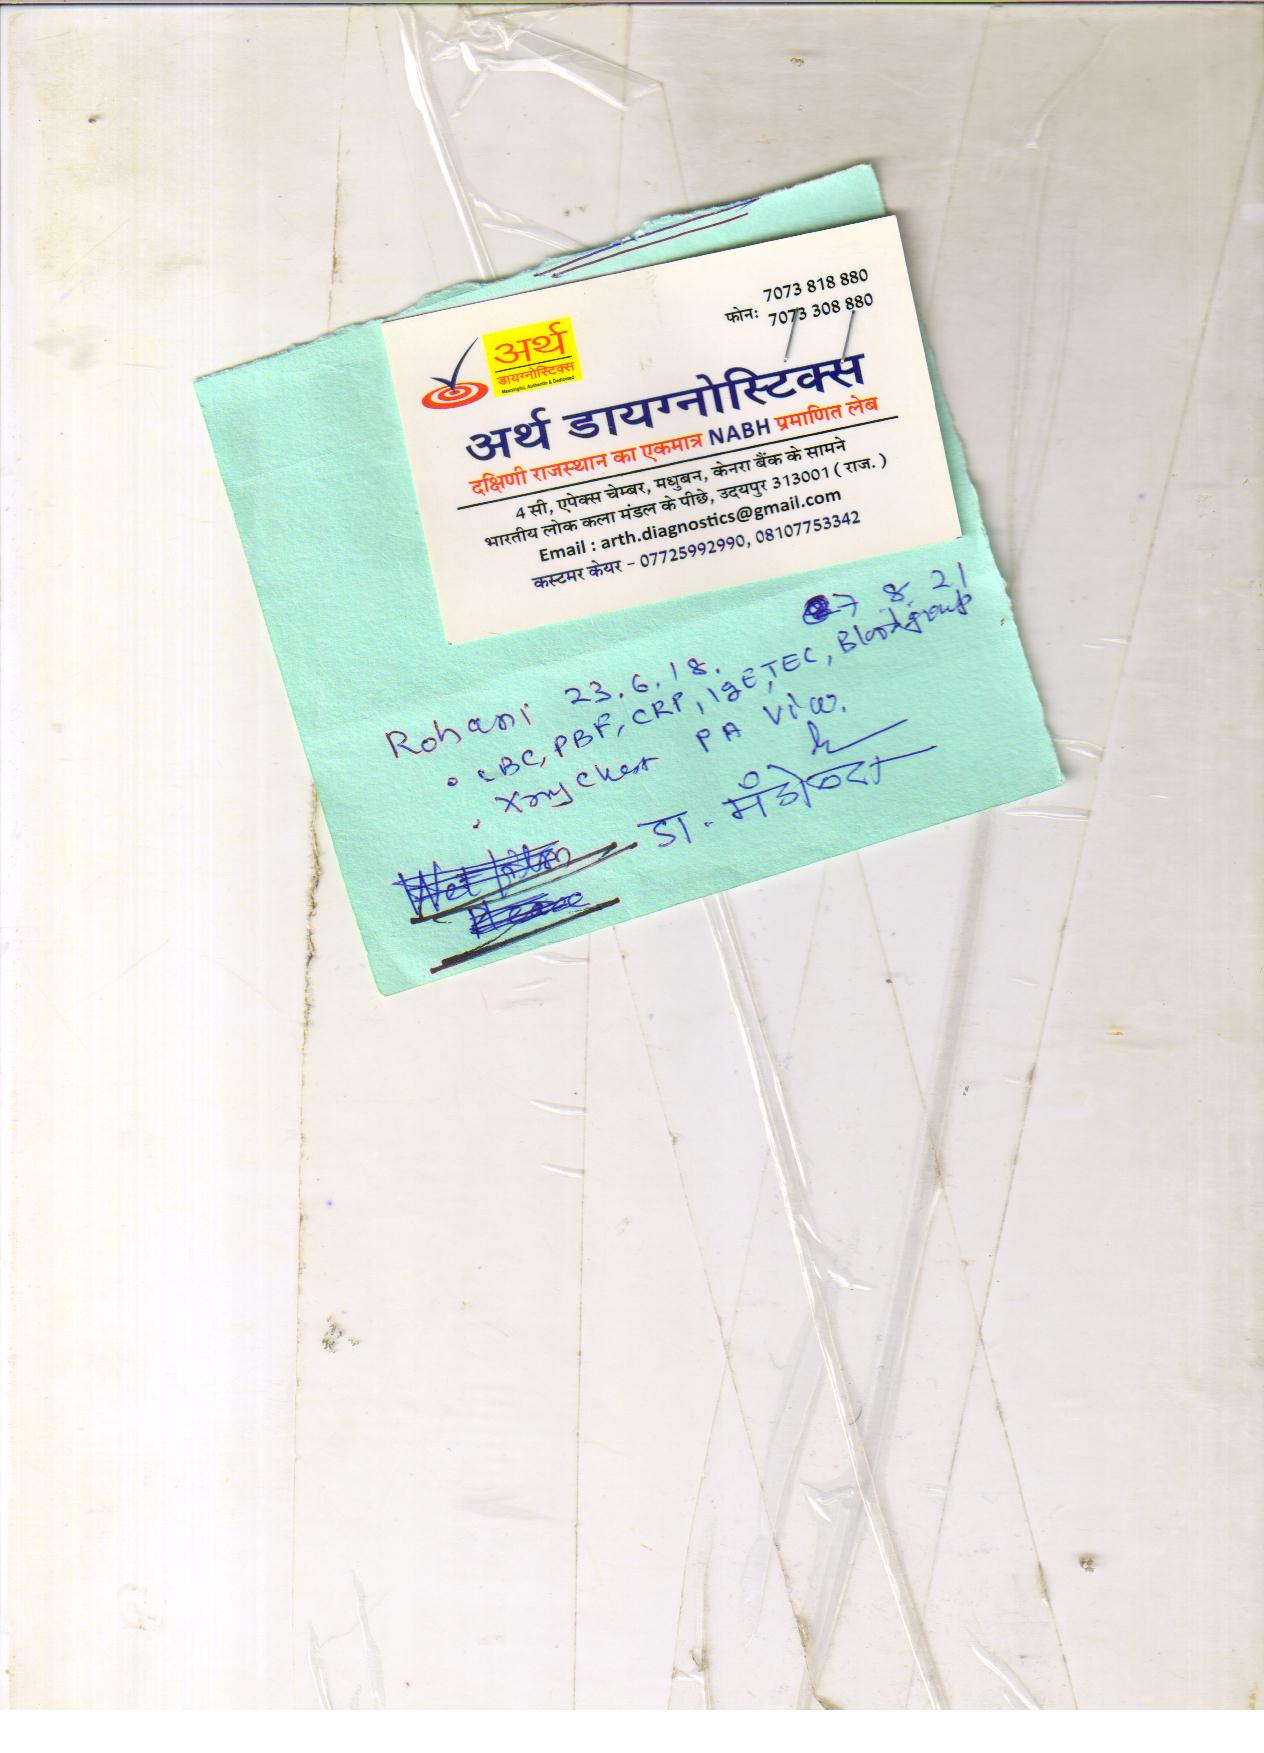 7073 818 880
फोन: 7073 308 880
अर्थ
डायग्नोस्टिक्स
Meaningful, Authentic & Dedicated
अर्थ डायग्नोस्टिक्स
दक्षिणी राजस्थान का एकमात्र NABH प्रमाणित लेब
4 सी, एपेक्स चेम्बर, मधुबन, केनरा बैंक के सामने
भारतीय लोक कला मंडल के पीछे, उदयपुर 313001 ( राज. )
Email : arth.diagnostics@gmail.com
कस्टमर केयर - 07725992990, 08107753342
7 8. 21
Rohani 23.6.18.
CBC, PBF, CRP, IgE, TEC, Blood group
Xray Chest PA View.
डा.